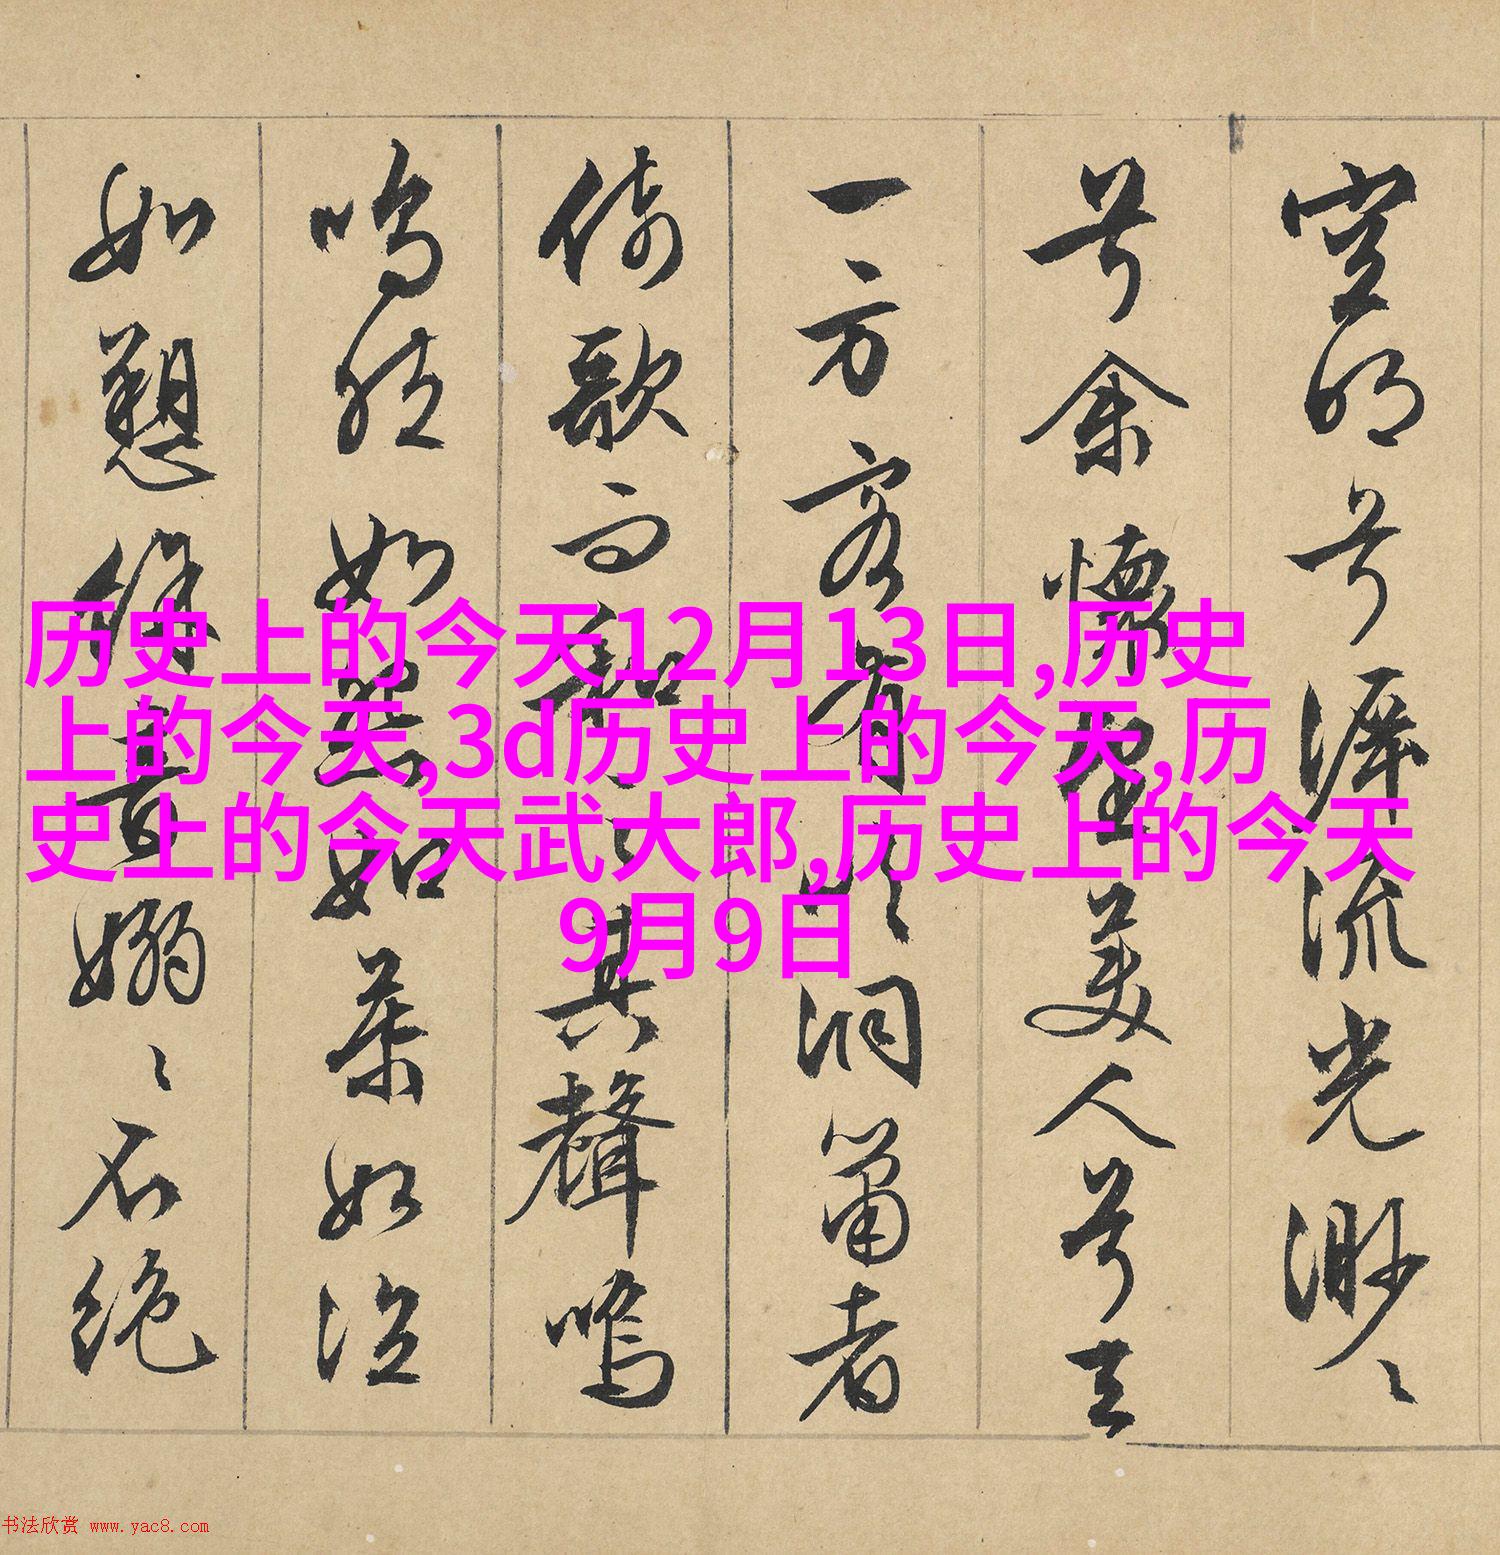 空明兮泝流光渺〻
兮余懷望美人兮天
一方客有吹洞簫者
倚歌而和之其聲嗚
嗚然如怨如慕如泣
如愬餘音嫋〻不絕
历史上的今天12月13日,历史
上的今天,3d历史上的今天,历
史上的今天武大郎,历史上的今天
9月9日
书法欣赏 www.yac8.com